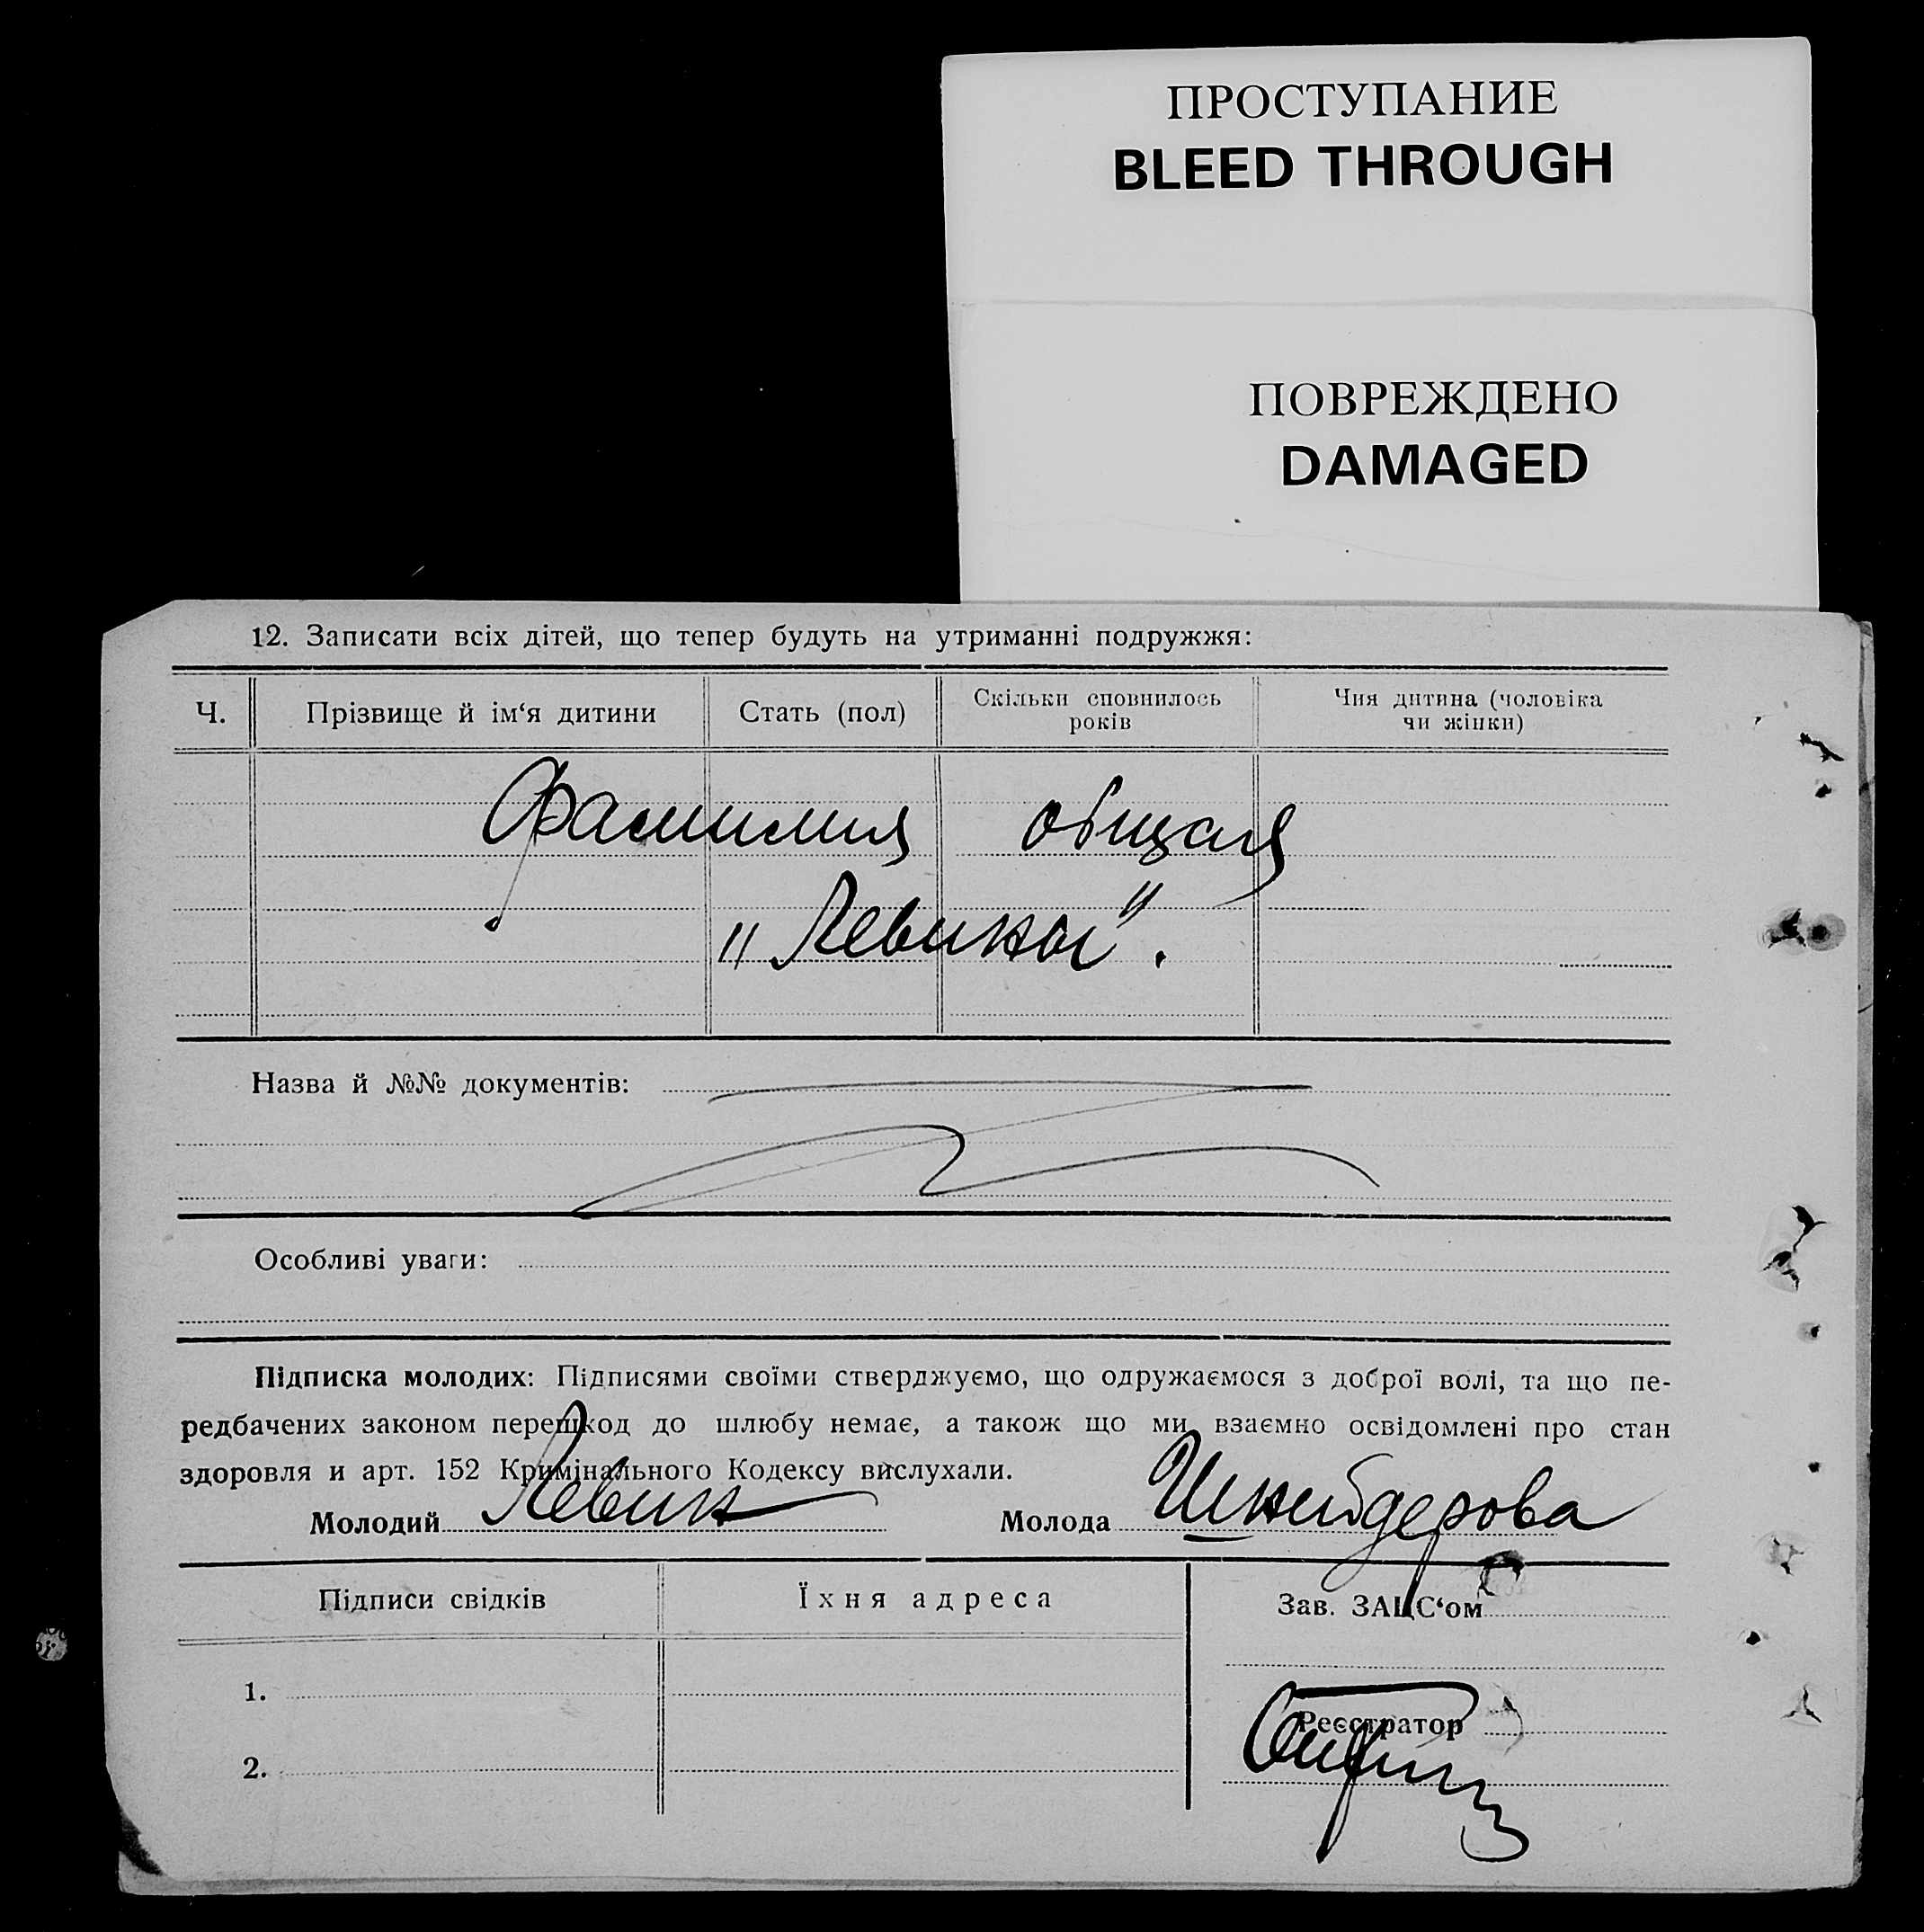 ПРОСТУПАНИЕ
BLEED THROUGH
ПОВРЕЖДЕНО
DAMAGED
12. Записати всіх дітей, що тепер будуть на утриманні подружжя:
Ч. Прізвище й ім‘я дитини Стать (пол) Скільки сповнилось років Чия дитина (чоловіка чи жінки)
Фамилия общая
„Левины".
Назва й №№ документів:
Особливі уваги:
Підписка молодих: Підписями своїми стверджуємо, що одружаємося з доброї волі, та що пе-
редбачених законом перешкод до шлюбу немає, а також що ми взаємно освідомлені про стан
здоровля и арт. 152 Кримінального Кодексу вислухали.
Молодий Левин Молода Шнейдерова
Підписи свідків Їхня адреса Зав. ЗАЦС‘ом
1.
Реєстратор
2.